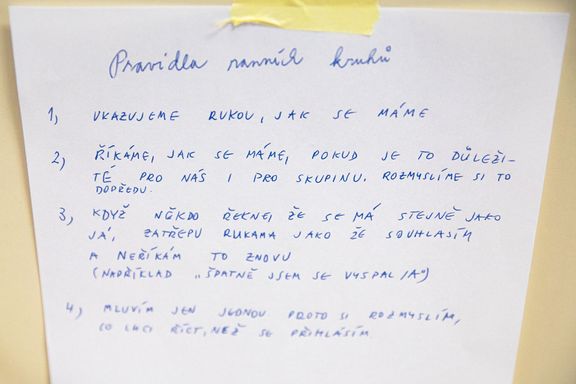 Pravidla ranních kruhů
1) UKAZUJEME RUKOU, JAK SE MÁME
2) ŘÍKÁME, JAK SE MÁME, POKUD JE TO DŮLEŽI-
TÉ PRO NÁS I PRO SKUPINU. ROZMYSLÍME SI TO
DOPŘEDU.
3) KDYŽ NĚKDO ŘEKNE, ŽE SE MÁ STEJNĚ JAKO
JÁ, ZATŘEPU RUKAMA JAKO ŽE SOUHLASÍM
A NEŘÍKÁM TO ZNOVU
(NAPŘÍKLAD „ŠPATNĚ JSEM SE VYSPAL/A")
4) MLUVÍM JEN JEDNOU PROTO SI ROZMYSLÍM,
CO CHCI ŘÍCT, NEŽ SE PŘIHLÁSÍM.